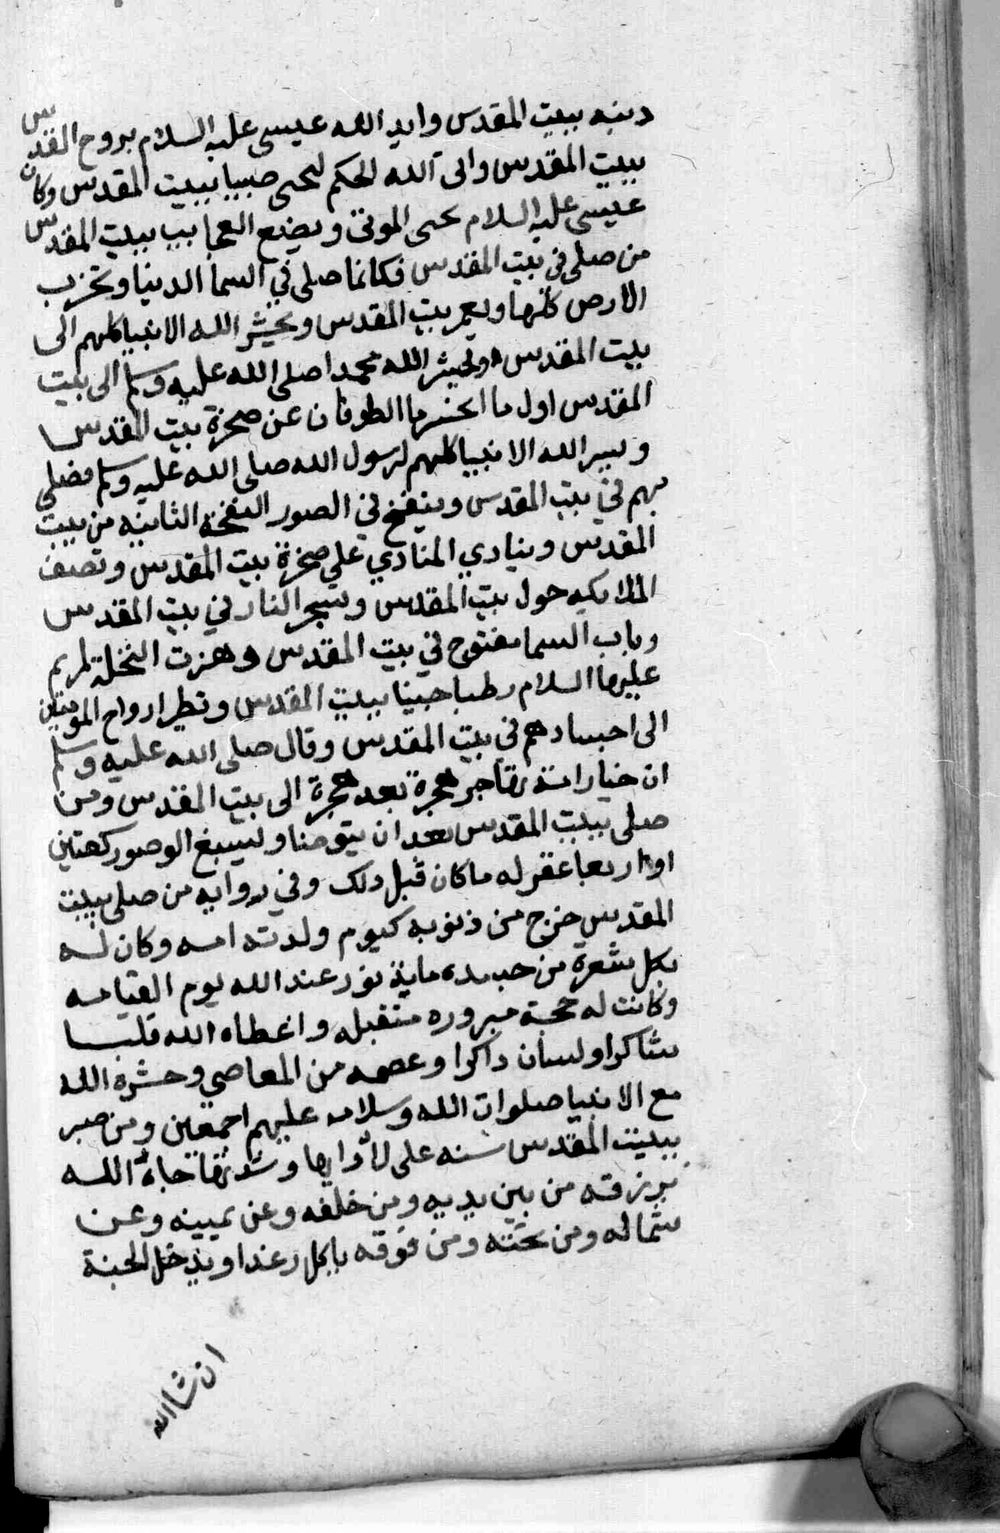 دينه ببيت المقدس وايد الله عيسى عليه السلام بروح القدس
ببيت المقدس واتى الله الحكم ليحيى صبيا ببيت المقدس وكان
عيسى عليه السلام يحيى الموتى ويضع العجايب ببيت المقدس
من صلى في بيت المقدس فكانما صلى في السما الدنيا وتخرب
الارض كلها ويعمر بيت المقدس ويحشر الله الانبيا كلهم الى
بيت المقدس ويحشر الله محمدا صلى الله عليه وسلم الى بيت
المقدس اول ما انحسر ما الطوفان عن صخرة بيت المقدس
ويسر الله الانبيا كلهم لرسول الله صلى الله عليه وسلم فصلى
بهم في بيت المقدس وينفخ في الصور النفخة الثانيه من بيت
المقدس وينادي المنادي على صخرة بيت المقدس وتصف
الملايكه حول بيت المقدس وتسجر النار في بيت المقدس
وباب السما مفتوح في بيت المقدس وهزت النخلة لمريم
عليها السلام رطبا جنيا ببيت المقدس وتطير ارواح المومنين
الى اجسادهم في بيت المقدس وقال صلى الله عليه وسلم
ان خيار امته تهاجر هجرة بعد هجرة الى بيت المقدس ومن
صلى ببيت المقدس بعد ان يتوضا ويسبغ الوضو ركعتين
او اربعا غفر له ما كان قبل ذلك وفي روايه من صلى ببيت
المقدس خرج من ذنوبه كيوم ولدته امه وكان له
بكل شعرة من جسده ماية نور عند الله يوم القيامه
وكانت له حجة مبروره متقبله واعطاه الله قلبا
شاكرا ولسان ذاكرا وعصمه من المعاصي وحشره الله
مع الانبيا صلوات الله وسلامه عليهم اجمعين ومن صبر
ببيت المقدس سنه على لأوايها وشدتها جاه الله
برزقه من بين يديه ومن خلفه وعن يمينه وعن
شماله ومن تحته ومن فوقه ياكل رغدا ويدخل الجنة
ان شا الله